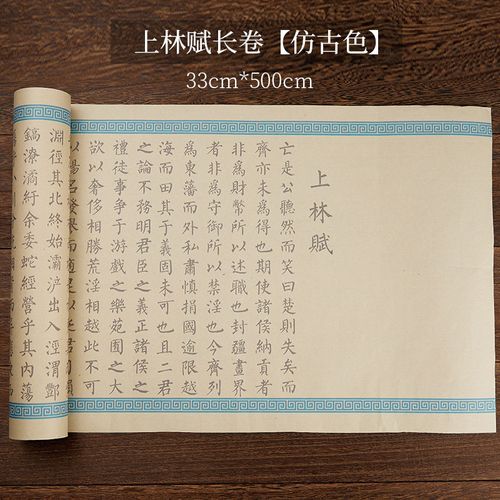 上林赋长卷【仿古色】
33cm*500cm
上林賦
亡是公聽然而笑曰楚則失矣而
齊亦未爲得也期使諸侯納貢者
非爲財幣所以述職也封疆畫界
者非爲守御所以禁淫也今齊列
爲東藩而外私肅慎捐國逾限越
海而田其于義固未可也且二君
之論不務明君臣之義正諸侯之
禮徒事爭于游戲之樂苑囿之大
欲以奢侈相勝荒淫相越此不可
淵徑其北終始灞沪出入涇渭酆
鎬潦潏紆余委蛇經營乎其內蕩